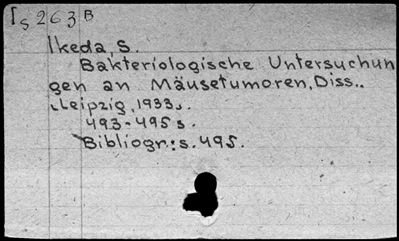 Is 263 B
Ikeda, S.
Bakteriologische Untersuchun
gen an Mäusetumoren, Diss..
Leipzig, 1933.
493-495 s.
Bibliogr: s. 495.